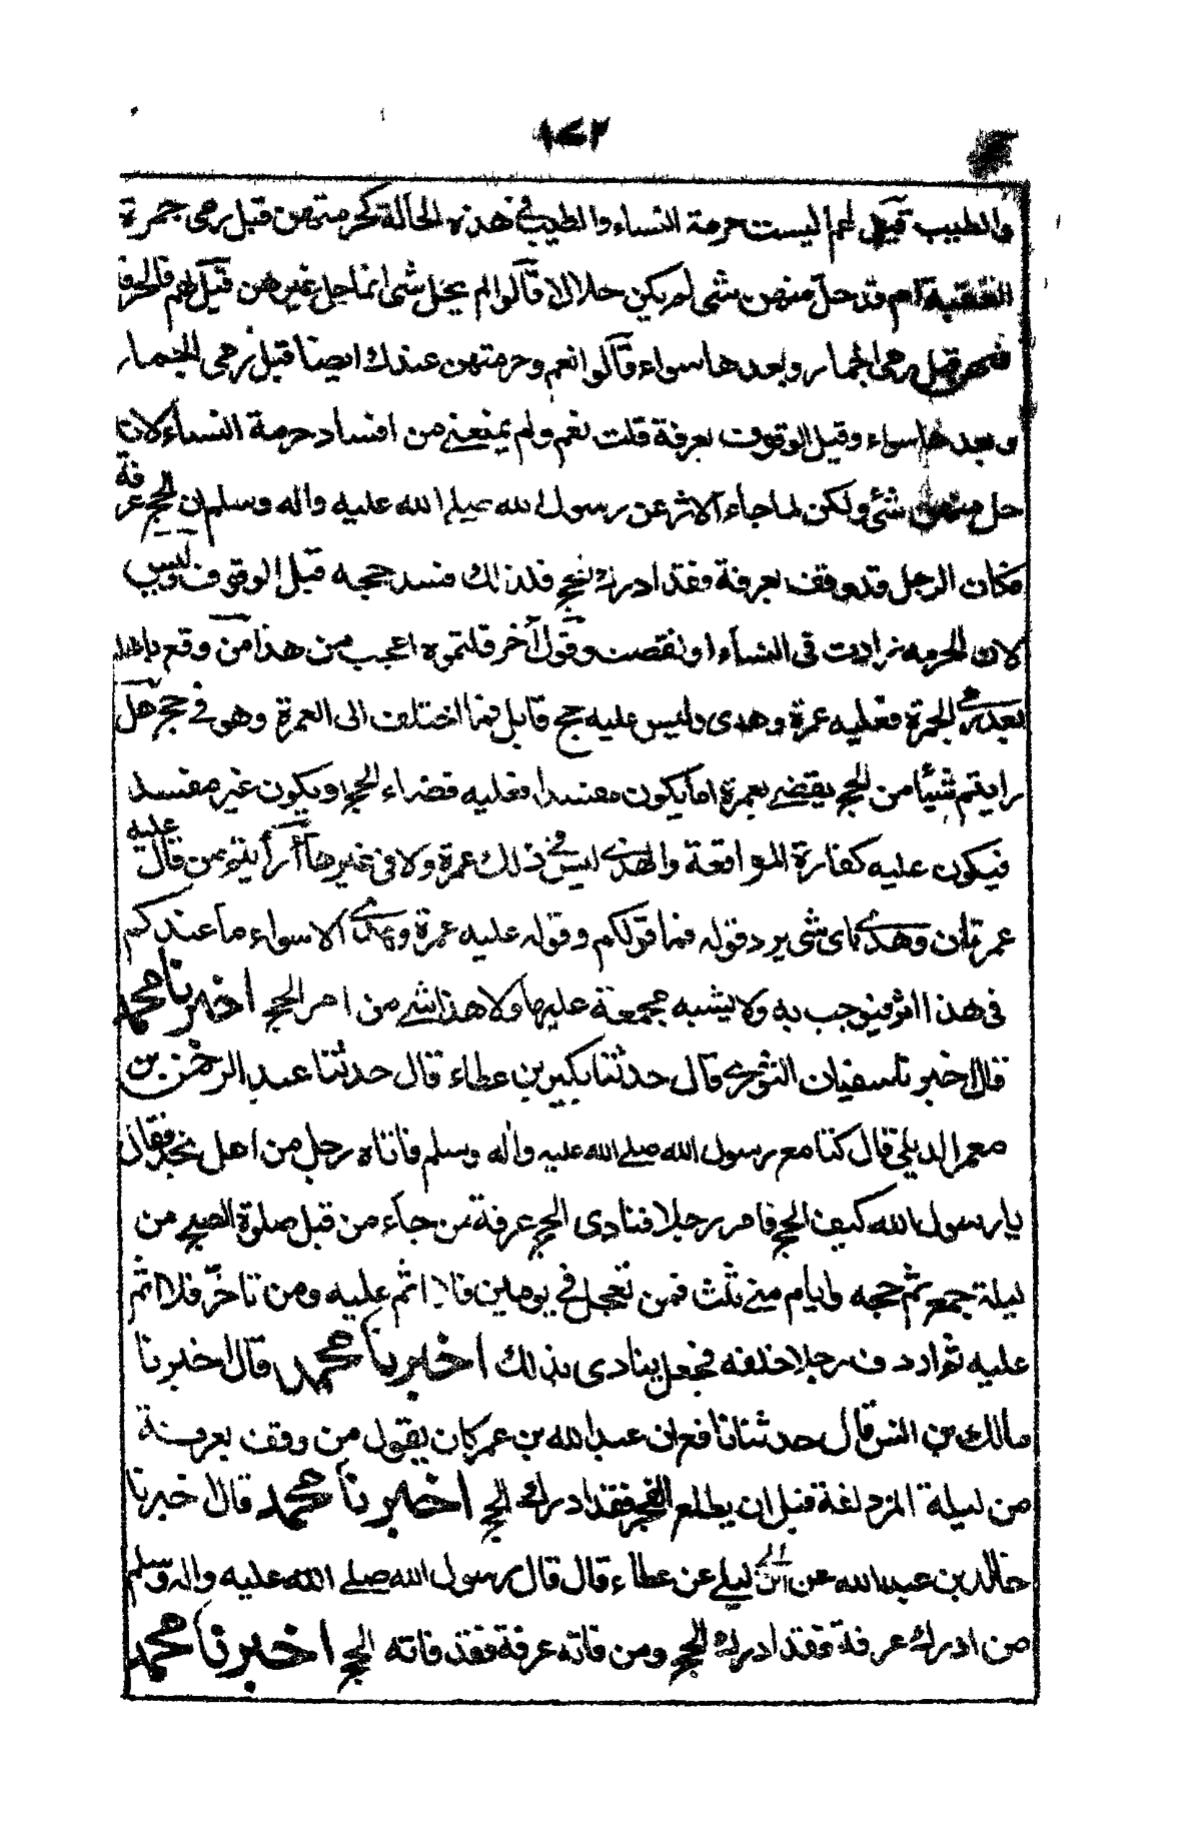 ١٧٢
والطيب قيل لهم اليست حرمة النساء والطيب في هذه الحالة كحرمتهن قبل رمى جمرة
العقبة ام قد حل منهن شى لم يكن حلالا قالوا لم يحل شى انما حل غيرهن قيل لهم فالحرمة
فيهن قبل رمى الجمار وبعدها سواء قالوا نعم وحرمتهن عندك ايضا قبل رمى الجمار
وبعدها سواء وقبل الوقوف بعرفة قلت نعم ولم يمنعنى من افساد حرمة النساء لانا
حل منهن شئ ولكن لما جاء الاثر عن رسول الله صلى الله عليه واله وسلم ان الحج عرفة
فكان الرجل قد وقف بعرفة فقد ادرك الحج فلذلك فسد حجه قبل الوقوف وليس
لان الحرمه زادت فى النساء او نقصت وقول آخر قلتموه اعجب من هذا من وقع باهله
بعد رمى الجمرة فعليه عمرة وهدى وليس عليه حج قابل فما اختلف الى العمرة وهو فى حج هل
رايتم شيئا من الحج يقضى بعمرة اما يكون مفسدا فعليه قضاء الحج او يكون غير مفسد
فيكون عليه كفارة المواقعة والهدى ليس فى ذلك عمرة ولا فى غيرها أرأيتم من قال عليه
عمرتان وهدى باى شى يرد قوله فما قولكم وقوله عليه عمرة وهدى الا سواء ما عندكم
فى هذا اثر فيوجب به ولا يشبه مجمعة عليها ولا هذا شى من امر الحج اخبرنا محمد
قال اخبرنا سفيان الثورى قال حدثنا بكير بن عطاء قال حدثنا عبد الرحمن بن
معمر الديلى قال كنا مع رسول الله صلى الله عليه واله وسلم فاتاه رجل من اهل نجد فقال
يا رسول الله كيف الحج فامر رجلا فنادى الحج عرفة من جاء من قبل صلوة الصبح من
ليلة جمع تم حجه وايام منى ثلث فمن تعجل فى يومين فلا اثم عليه ومن تاخر فلا اثم
عليه ثم اردف رجلا خلفه فجعل ينادى بذلك اخبرنا محمد قال اخبرنا
مالك بن انس قال حدثنا نافع ان عبد الله بن عمر كان يقول من وقف بعرفة
من ليلة المزدلفة قبل ان يطلع الفجر فقد ادرك الحج اخبرنا محمد قال اخبرنا
خالد بن عبد الله عن ابن ابى ليلى عن عطاء قال قال رسول الله صلى الله عليه واله وسلم
من ادرك عرفة فقد ادرك الحج ومن فاته عرفة فقد فاته الحج اخبرنا محمد